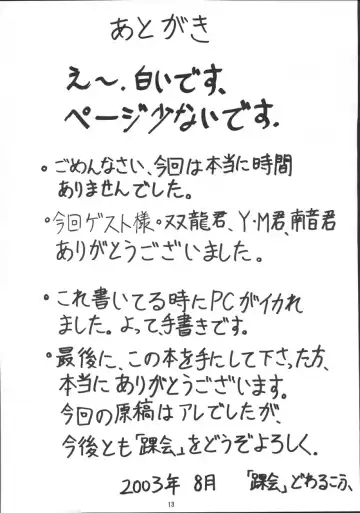 あとがき
え〜、白いです、
ページ少ないです.
・ごめんなさい、今回は本当に時間
ありませんでした。
・今回ゲスト様。双龍君、Y・M君、南音君
ありがとうございました。
・これ書いてる時にPCがイカれ
ました。よって、手書きです。
・最後に、この本を手にして下さった方、
本当にありがとうございます。
今回の原稿はアレでしたが、
今後とも「踝会」をどうぞよろしく.
2003年 8月 「踝会」どわるこふ、
13